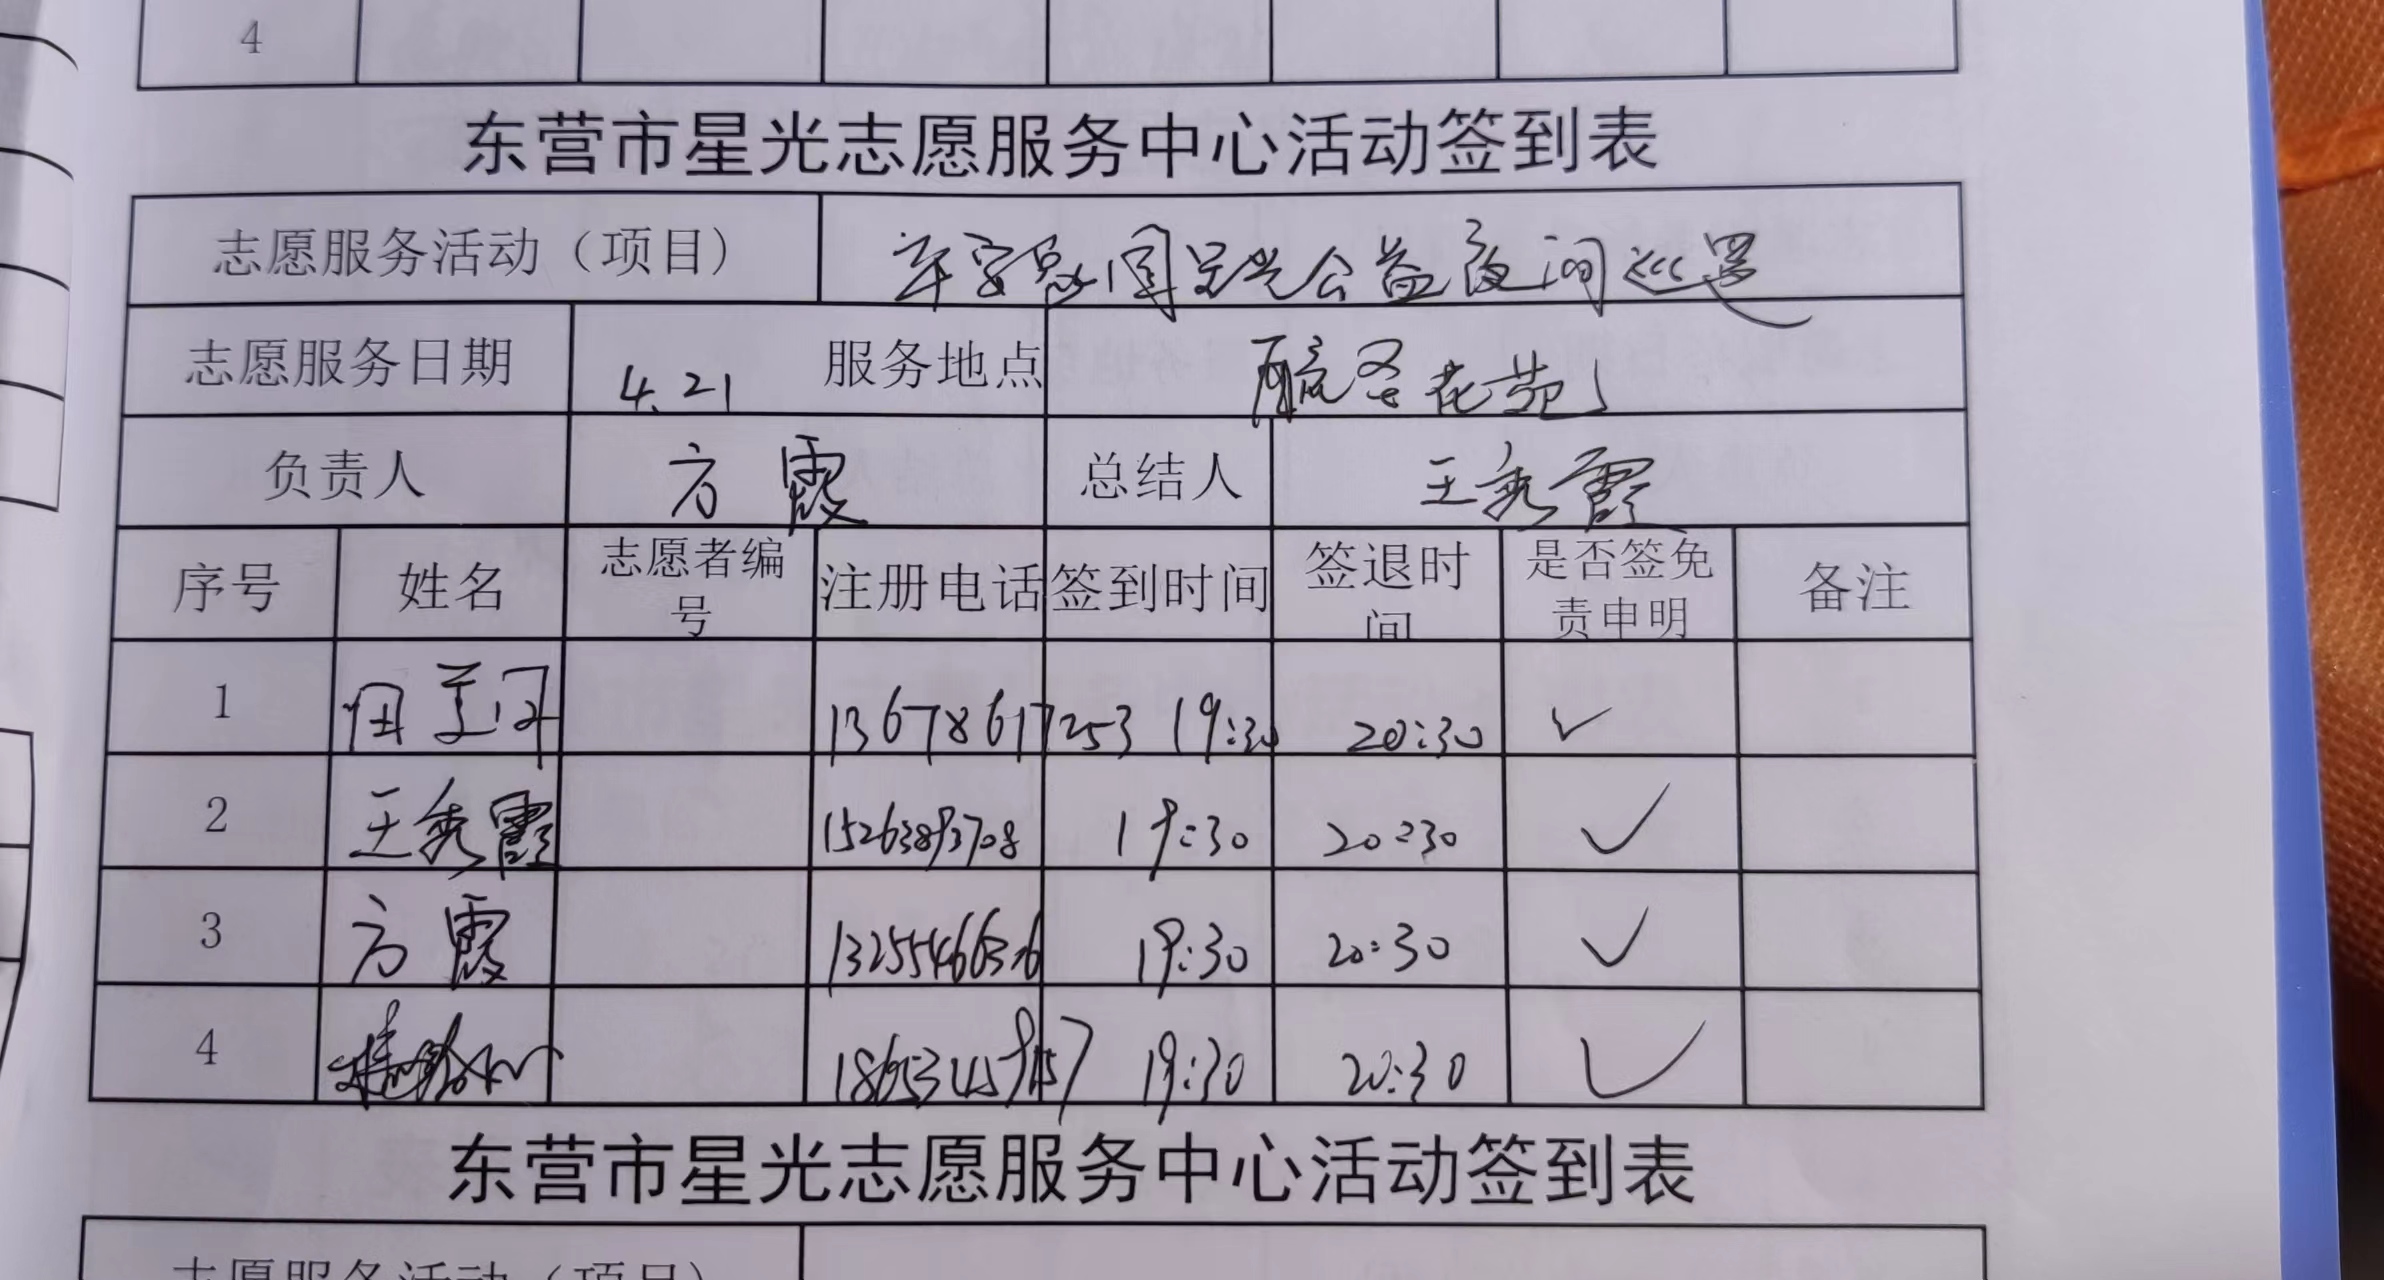 4
东营市星光志愿服务中心活动签到表
志愿服务活动（项目） 平安家园星光公益夜间巡逻
志愿服务日期 4.21 服务地点 花苑
负责人 方霞 总结人 王秀霞
序号 姓名 志愿者编号 注册电话 签到时间 签退时间 是否签免责申明 备注
1 田美丹 13678617253 19:30 20:30 ✓
2 王秀霞 15263893708 19:30 20:30 ✓
3 方霞 19:30 20:30 ✓
4 19:30 20:30 ✓
东营市星光志愿服务中心活动签到表
志愿服务活动（项目）